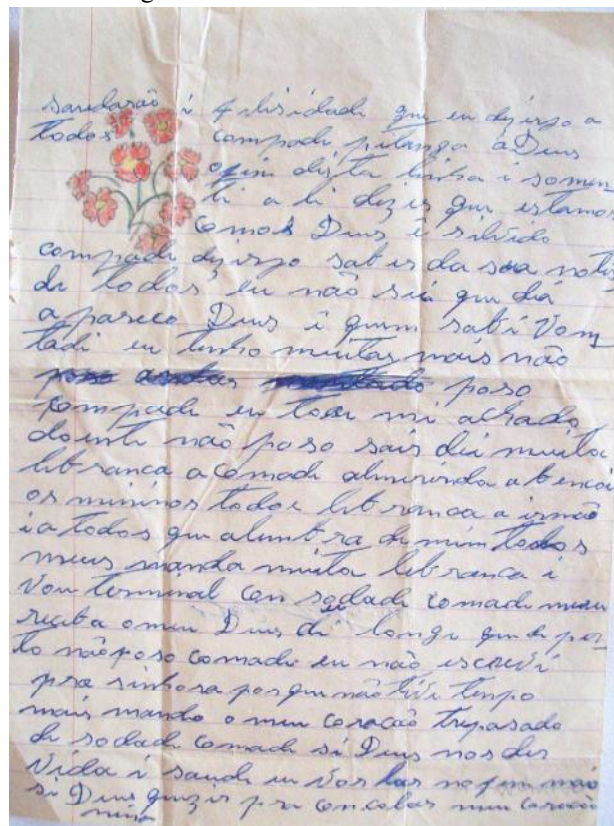 saudasão i filisidade que eu dezejo a
todos compade pitanga a Deus
o fim desta linha i somen
ti a li dizer que estamos
como Deus é silvido
compade dezejo saber da sua noti
de todos eu não sei que dia
apareco Deus i quem sabi Vom
tadi eu tenho muitas mais não
poso
compade eu tou mi achado
doenti não poso sair dei muita
lebranca acomade almerinda abencoi
os mininos todos lebranca a irmão
i a todos que alembra de mim todos
meus manda muita lebranca i
Vou terminal con sodade comade meu
receba o meu Deus di longi que de per
to não poso comade eu não escrevi
pra sinhora porque não tive tenpo
mais mando o meu coracão trepasado
de sodade comade si Deus nos der
Vida i saudi eu vou las no fim
si Deus quizer pra meu coracão